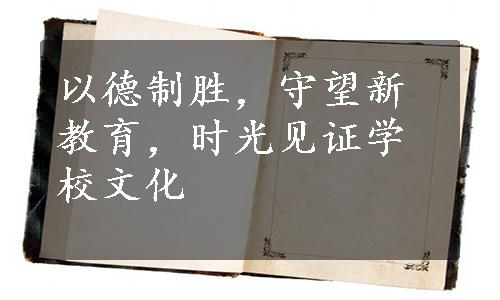 以德制胜，守望新
教育，时光见证学
校文化